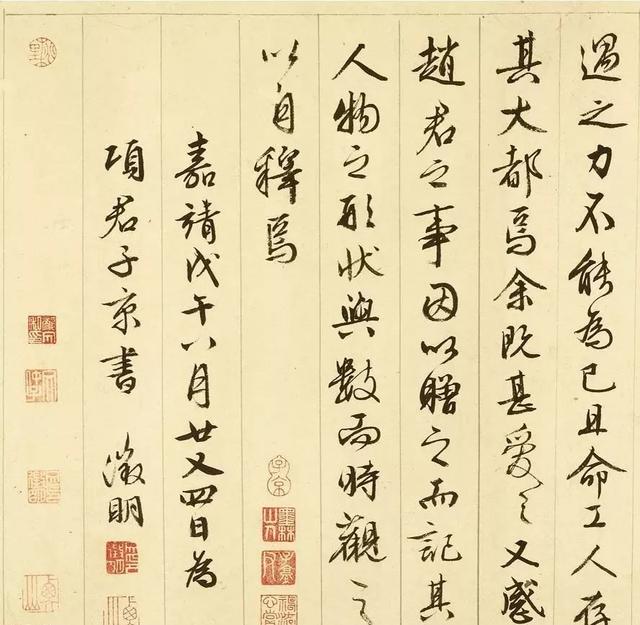 過之力不能為已且命工人存
其大都焉余既甚愛之又感
趙君之事因以贈之而記其
人物之形狀與數而時觀之
以自釋焉
嘉靖戊午八月廿又四日為
項君子京書　徵明
子京
墨林山人